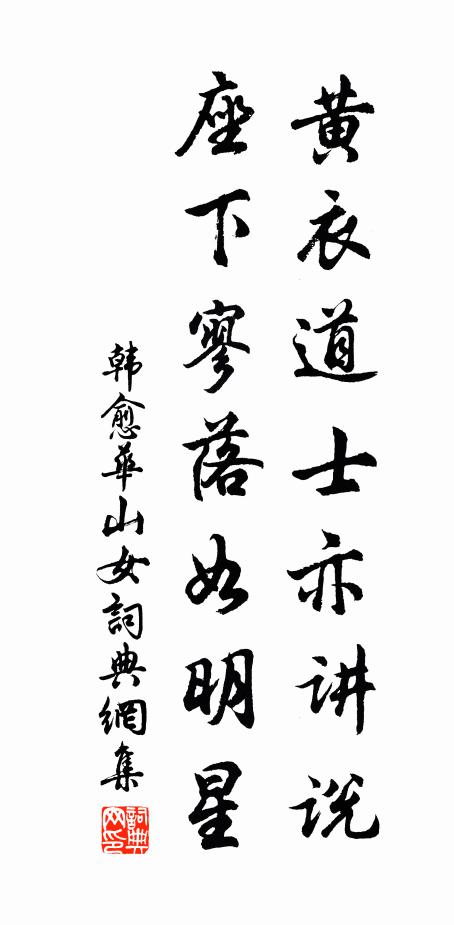 黄衣道士亦讲说
座下寥落如明星
韩愈華山女詞典網集
詞典网印